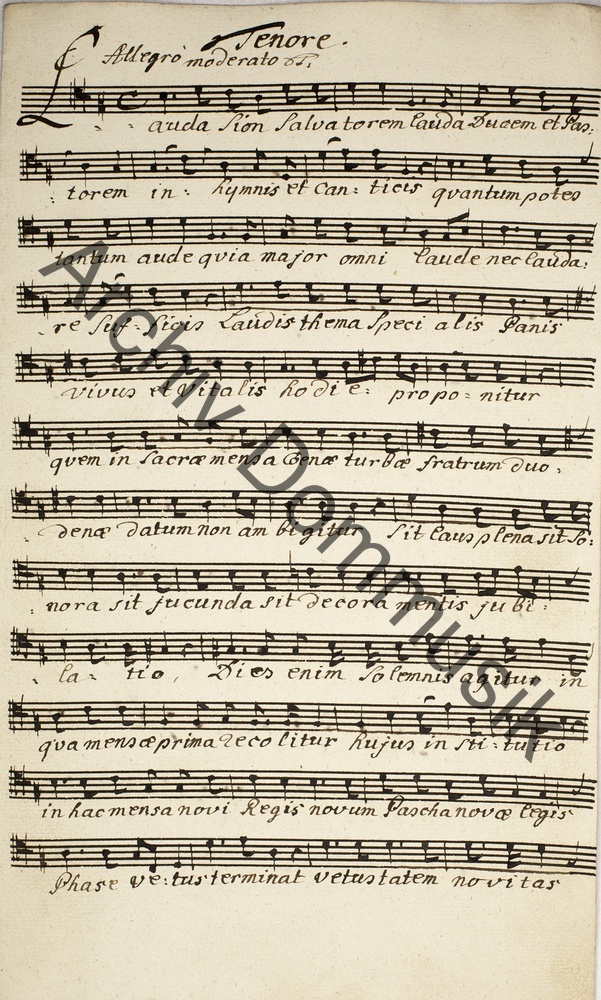 Tenore.
Allegro moderato
Lauda Sion Salvatorem Lauda Ducem et Pas:
torem in: hymnis et can: ticis quantum potes
tantum aude quia major omni laude nec lauda:
re suf: ficis Laudis thema speci alis Panis
vivus et Vitalis hodi e: propo: nitur
quem in Sacræ mensa Cœnæ turbæ fratrum duo:
denæ datum non am bigitur Sit Laus plena sit So:
nora sit jucunda sit decora mentis jubi:
la: tio, Dies enim Solemnis agitur in
qua mensæ prima recolitur hujus in sti: tutio
in hac mensa novi Regis novum Pascha novæ legis
Phase ve: tus terminat vetustatem novitas
Archiv Dommusik